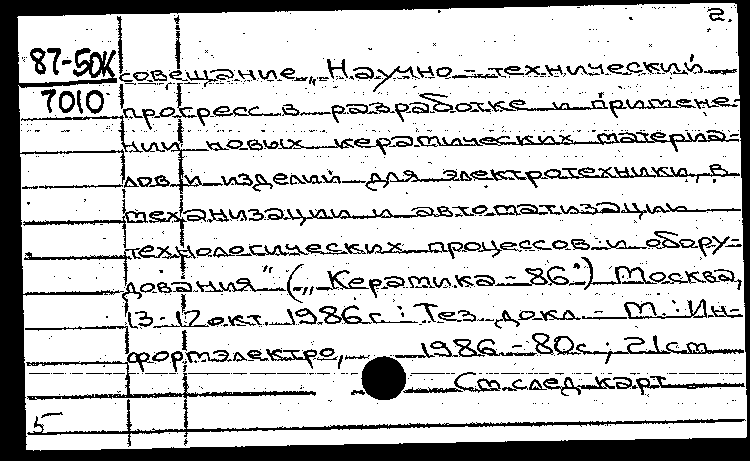 2.
87-50К
7010
совещание „Научно-технический
прогресс в разработке и примене-
нии новых керамических материа-
лов и изделий для электротехники, в
механизации и автоматизации
технологических процессов и обору-
дования" („Керамика-86") Москва,
13-17 окт. 1986 г.: Тез. докл. - М.: Ин-
формэлектро, 1986 - 80с.; 21см
См. след. карт.
5